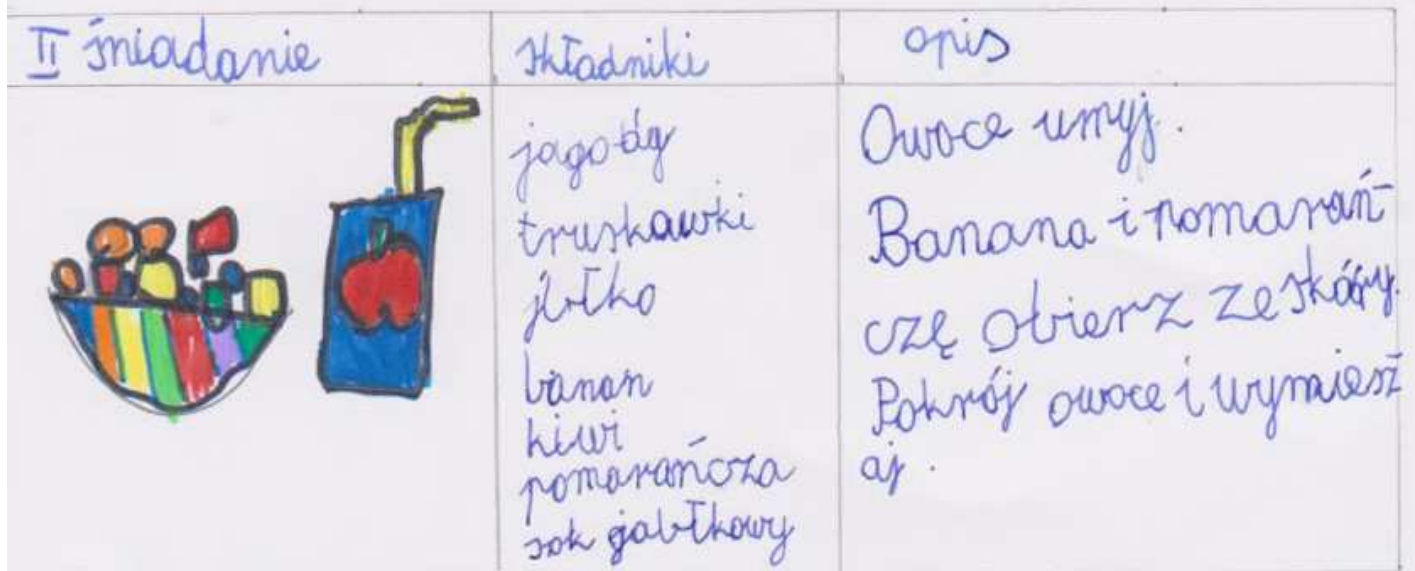 II śniadanie
składniki
opis
jagody
truskawki
jbłko
banan
kiwi
pomarańcza
sok jabłkowy
Owoce umyj.
Banana i pomarań-
czę obierz ze skóry.
Pokrój owoce i wymiesz
aj.